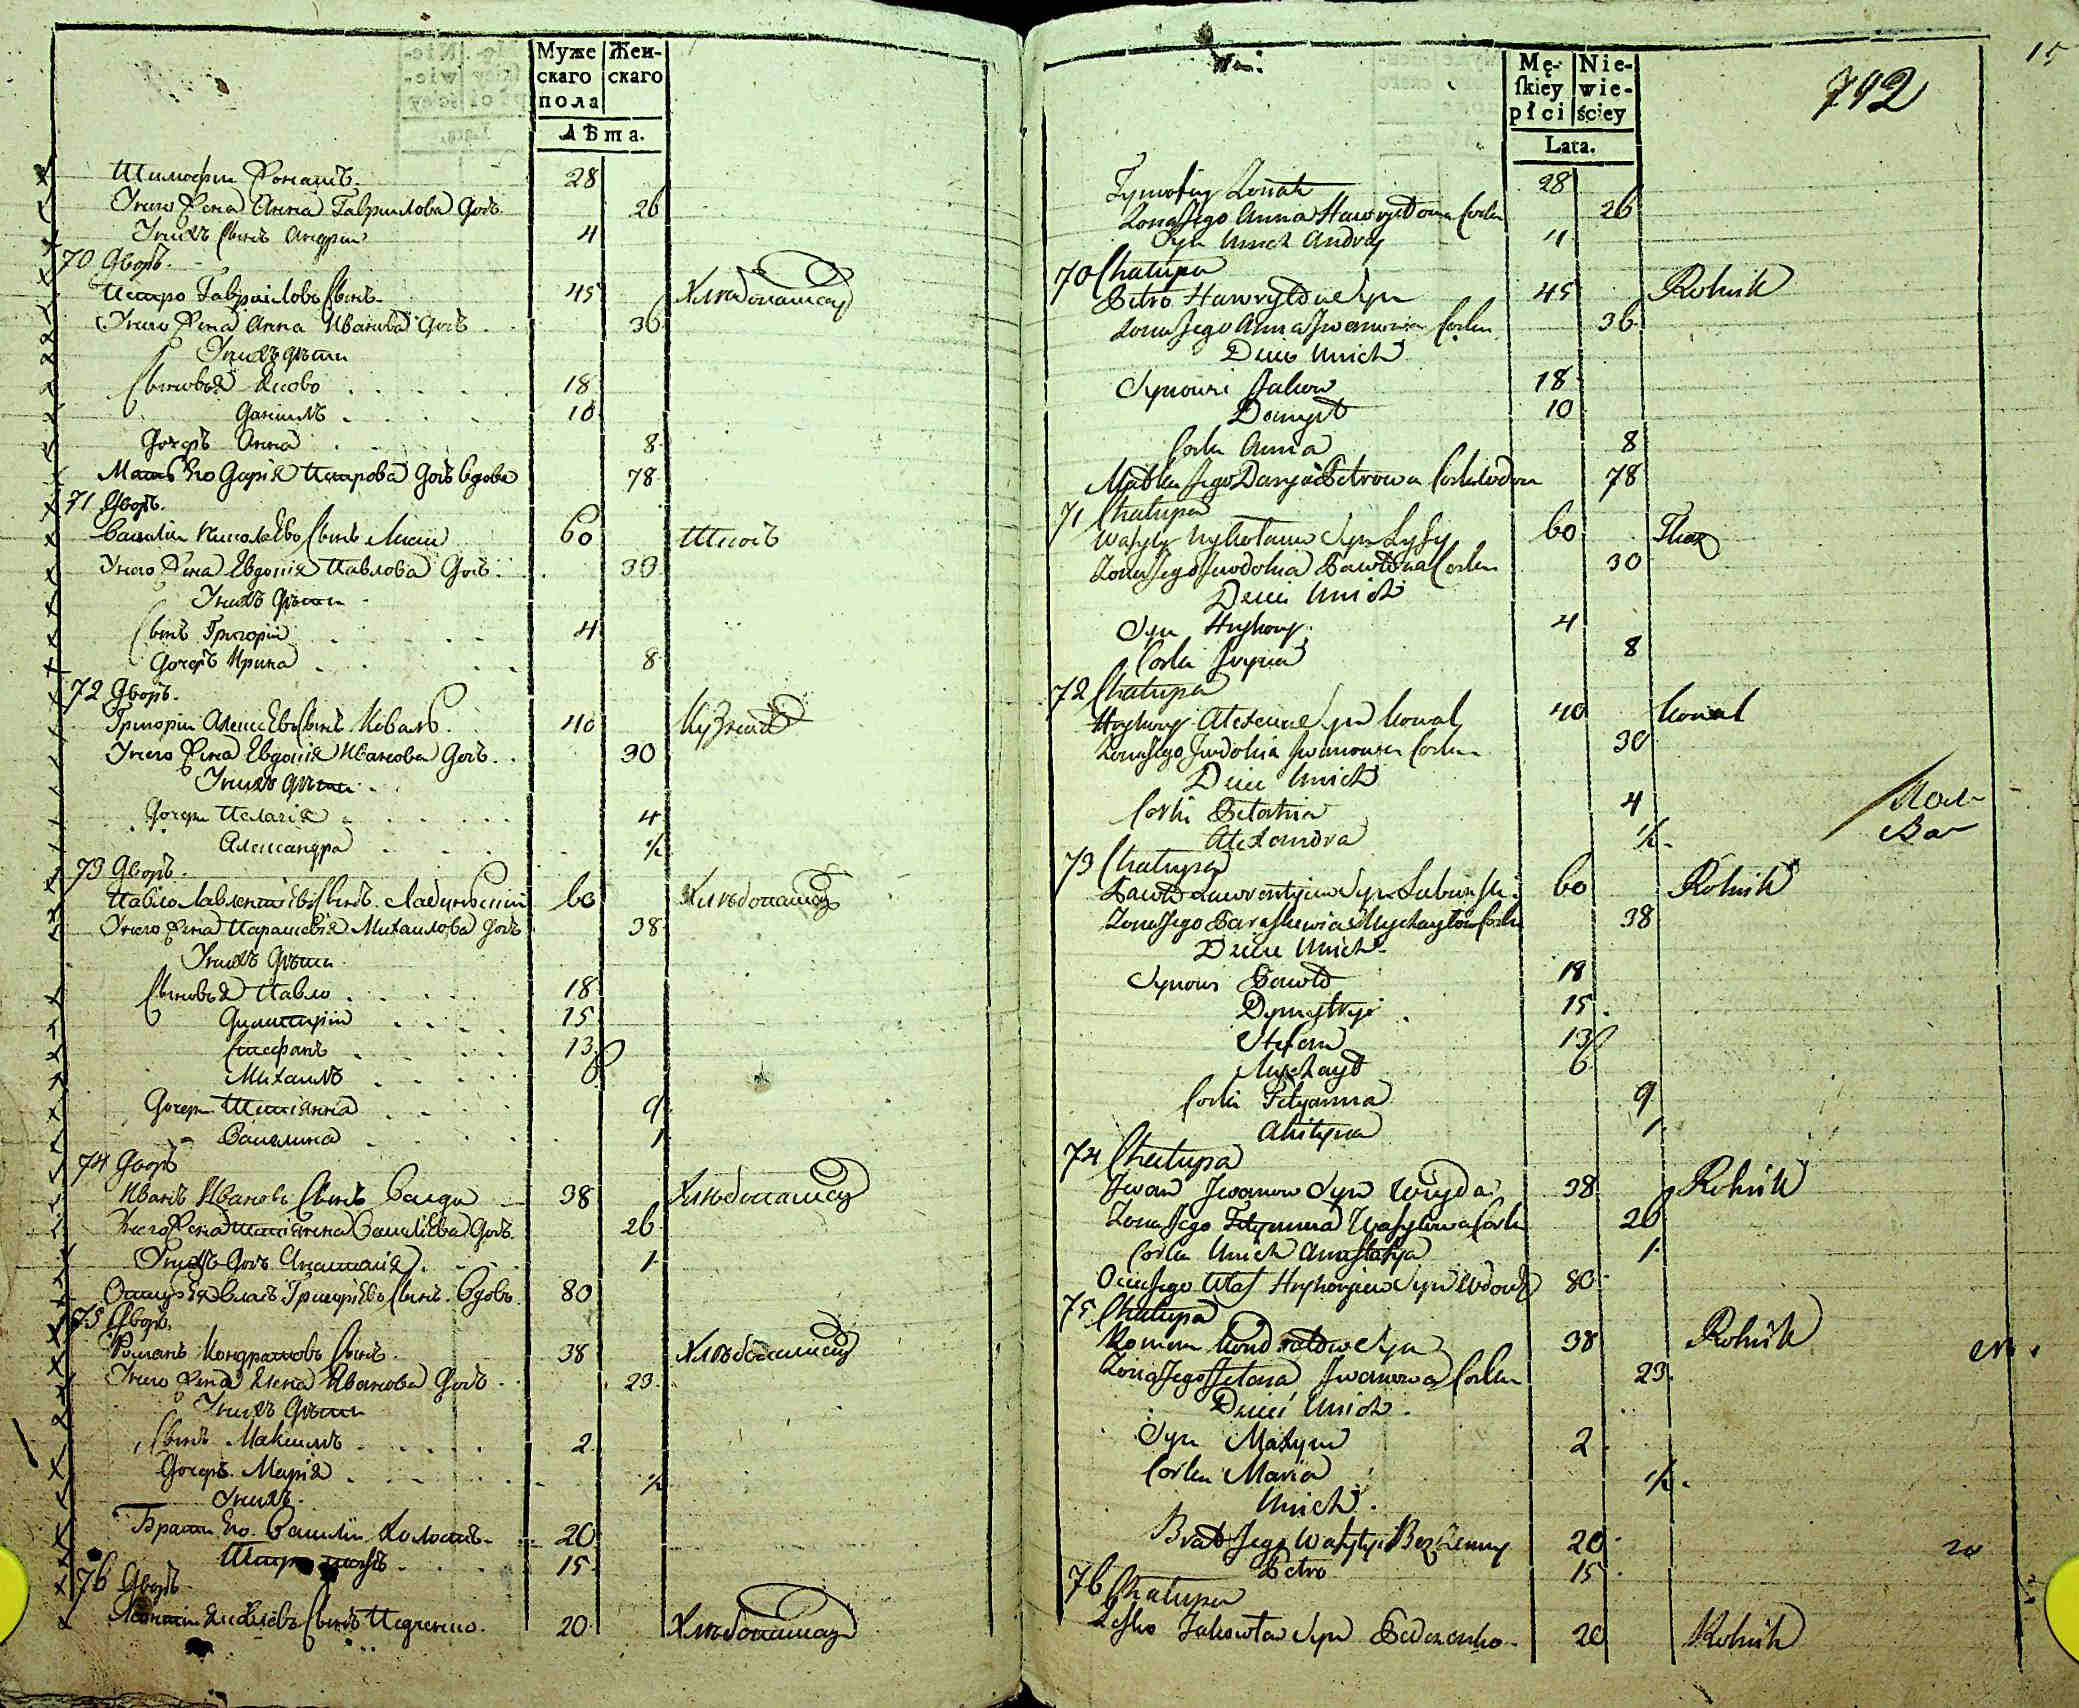 Муже
скаго
пола
Жен-
скаго
Лѣта.
28
У него Жена Анна Гаврилова Дочь 26
У нихъ Сынъ Андрей 4
70 Дворъ.
Петро Гавриловъ Сынъ 45 Хлѣбопашец
У него Жена Анна Иванова Дочь 36
У нихъ дѣти
Сыновья Яково 18
Данило 10
Дочерь Анна 8
Мать Его Дарія Петрова Дочь Вдова 78
71 Дворъ.
Василій Николаевъ Сынъ Лисій 60 Ткачь
У него Жена Евдокія Павлова Дочь 30
У нихъ Дѣти
Сынъ Григорій 4
Дочерь Ирина 8
72 Дворъ.
Григорій Алексеевъ Сынъ Коваль 40 Кузнецъ
У него Жена Евдокія Иванова Дочь 30
У нихъ Дѣти
Дочери Пелагія 4
Александра ½
73 Дворъ.
Павло Лаврентіевъ Сынъ 60 Хлѣбопашец
У него Жена Параскевія Михайлова Дочь 38
У нихъ Дѣти
Сыновья Павло 18
Дмитрій 15
Стефанъ 13
Михаилъ 6
Дочери Тетіянна 9
1
74 Дворъ
Иванъ Ивановъ Сынъ 38 Хлѣбопашец
У него Жена Тетіянна Василіева Дочь 26
У нихъ Дочь Анастасія 1
Отецъ Его Власъ Григоріевъ Сынъ Вдовъ 80
75 Дворъ.
Романъ Кондратовъ Сынъ 38 Хлѣбопашец
У него Жена Елена Иванова Дочь 23
У нихъ Дѣти
Сынъ Максимъ 2
Дочерь Марія ½
У нихъ
Братъ Его Василій Холостъ 20
15
76 Дворъ
Сынъ Педченко 20 Хлѣбопашец
Mę-
ſkiey
płci
Nie-
wie-
ściey
Lata.
792
15
Tymofiey 28
Zona Jego Anna Hawryłowa Corka 26
Syn Unich Andrey 4
70 Chałupa
Petro Hawryłow Syn 45 Rolnik
Zona Jego Anna Iwanowa Corka 36
Dzieci Unich
Synowie Jakow 18
Danyło 10
Corka Anna 8
Matka Jego Darya Petrowa Corka Wdowa 78
71 Chałupa
Wasyly Nykołaiew Syn Łysy 60 Tkacz
Zona Jego Jewdokia Pawłowa Corka 30
Dzieci Unich
Syn Hryhory 4
Corka Iryna 8
72 Chałupa
Hryhory Alexeiew Syn Kowal 40 Kowal
Zona Jego Jewdokia Iwanowa Corka 30
Dzieci Unich
Corki Pełahia 4
Alexandra ½
73 Chałupa
Pawło Lawrentyiew Syn 60 Rolnik
Zona Jego Paraskiewia Mychayłowa Corka 38
Dzieci Unich
Synowie Pawło 18
Dymytryi 15
Stefan 13
Mychayło 6
Corki Tetyanna 9
1
74 Chałupa
Iwan Iwanow Syn 38 Rolnik
Zona Jego Tetyanna Wasylowa Corka 26
Corka Unich Anastasya 1
Ociec Jego Włas Hryhoryiew Syn Wdowiec 80
75 Chałupa
Roman Kondratow Syn 38 Rolnik
Zona Jego Jelena Iwanowa Corka 23
Dzieci Unich
Syn Maxym 2
Corka Maria ½
Unich
Brat Jego Wasyly Bezżenny 20
Petro 15
76 Chałupa
Syn Pedczenko 20 Rolnik